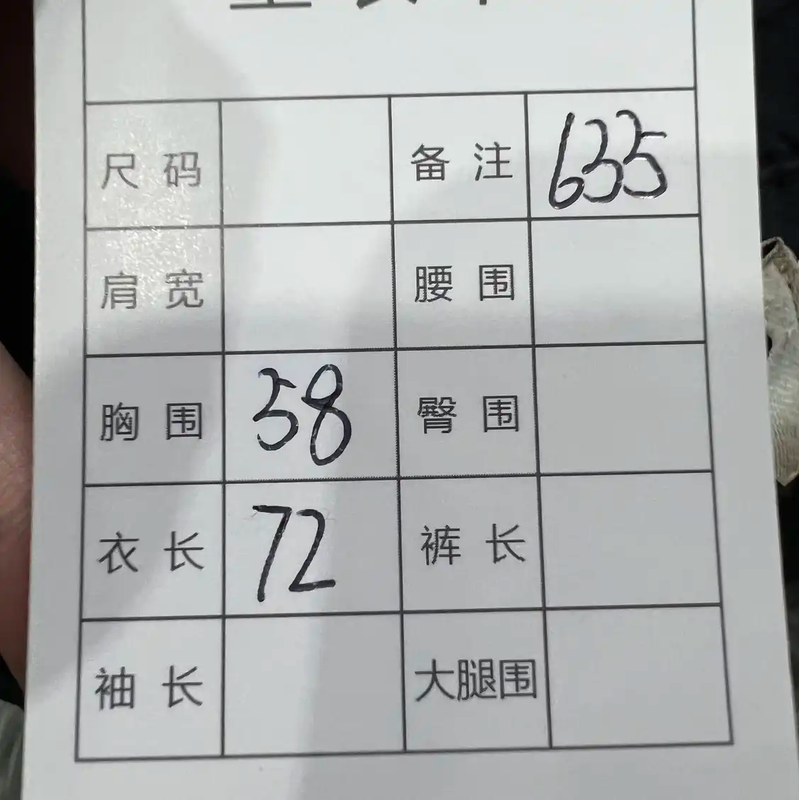 尺码 备注 635
肩宽 腰围
胸围 58 臀围
衣长 72 裤长
袖长 大腿围